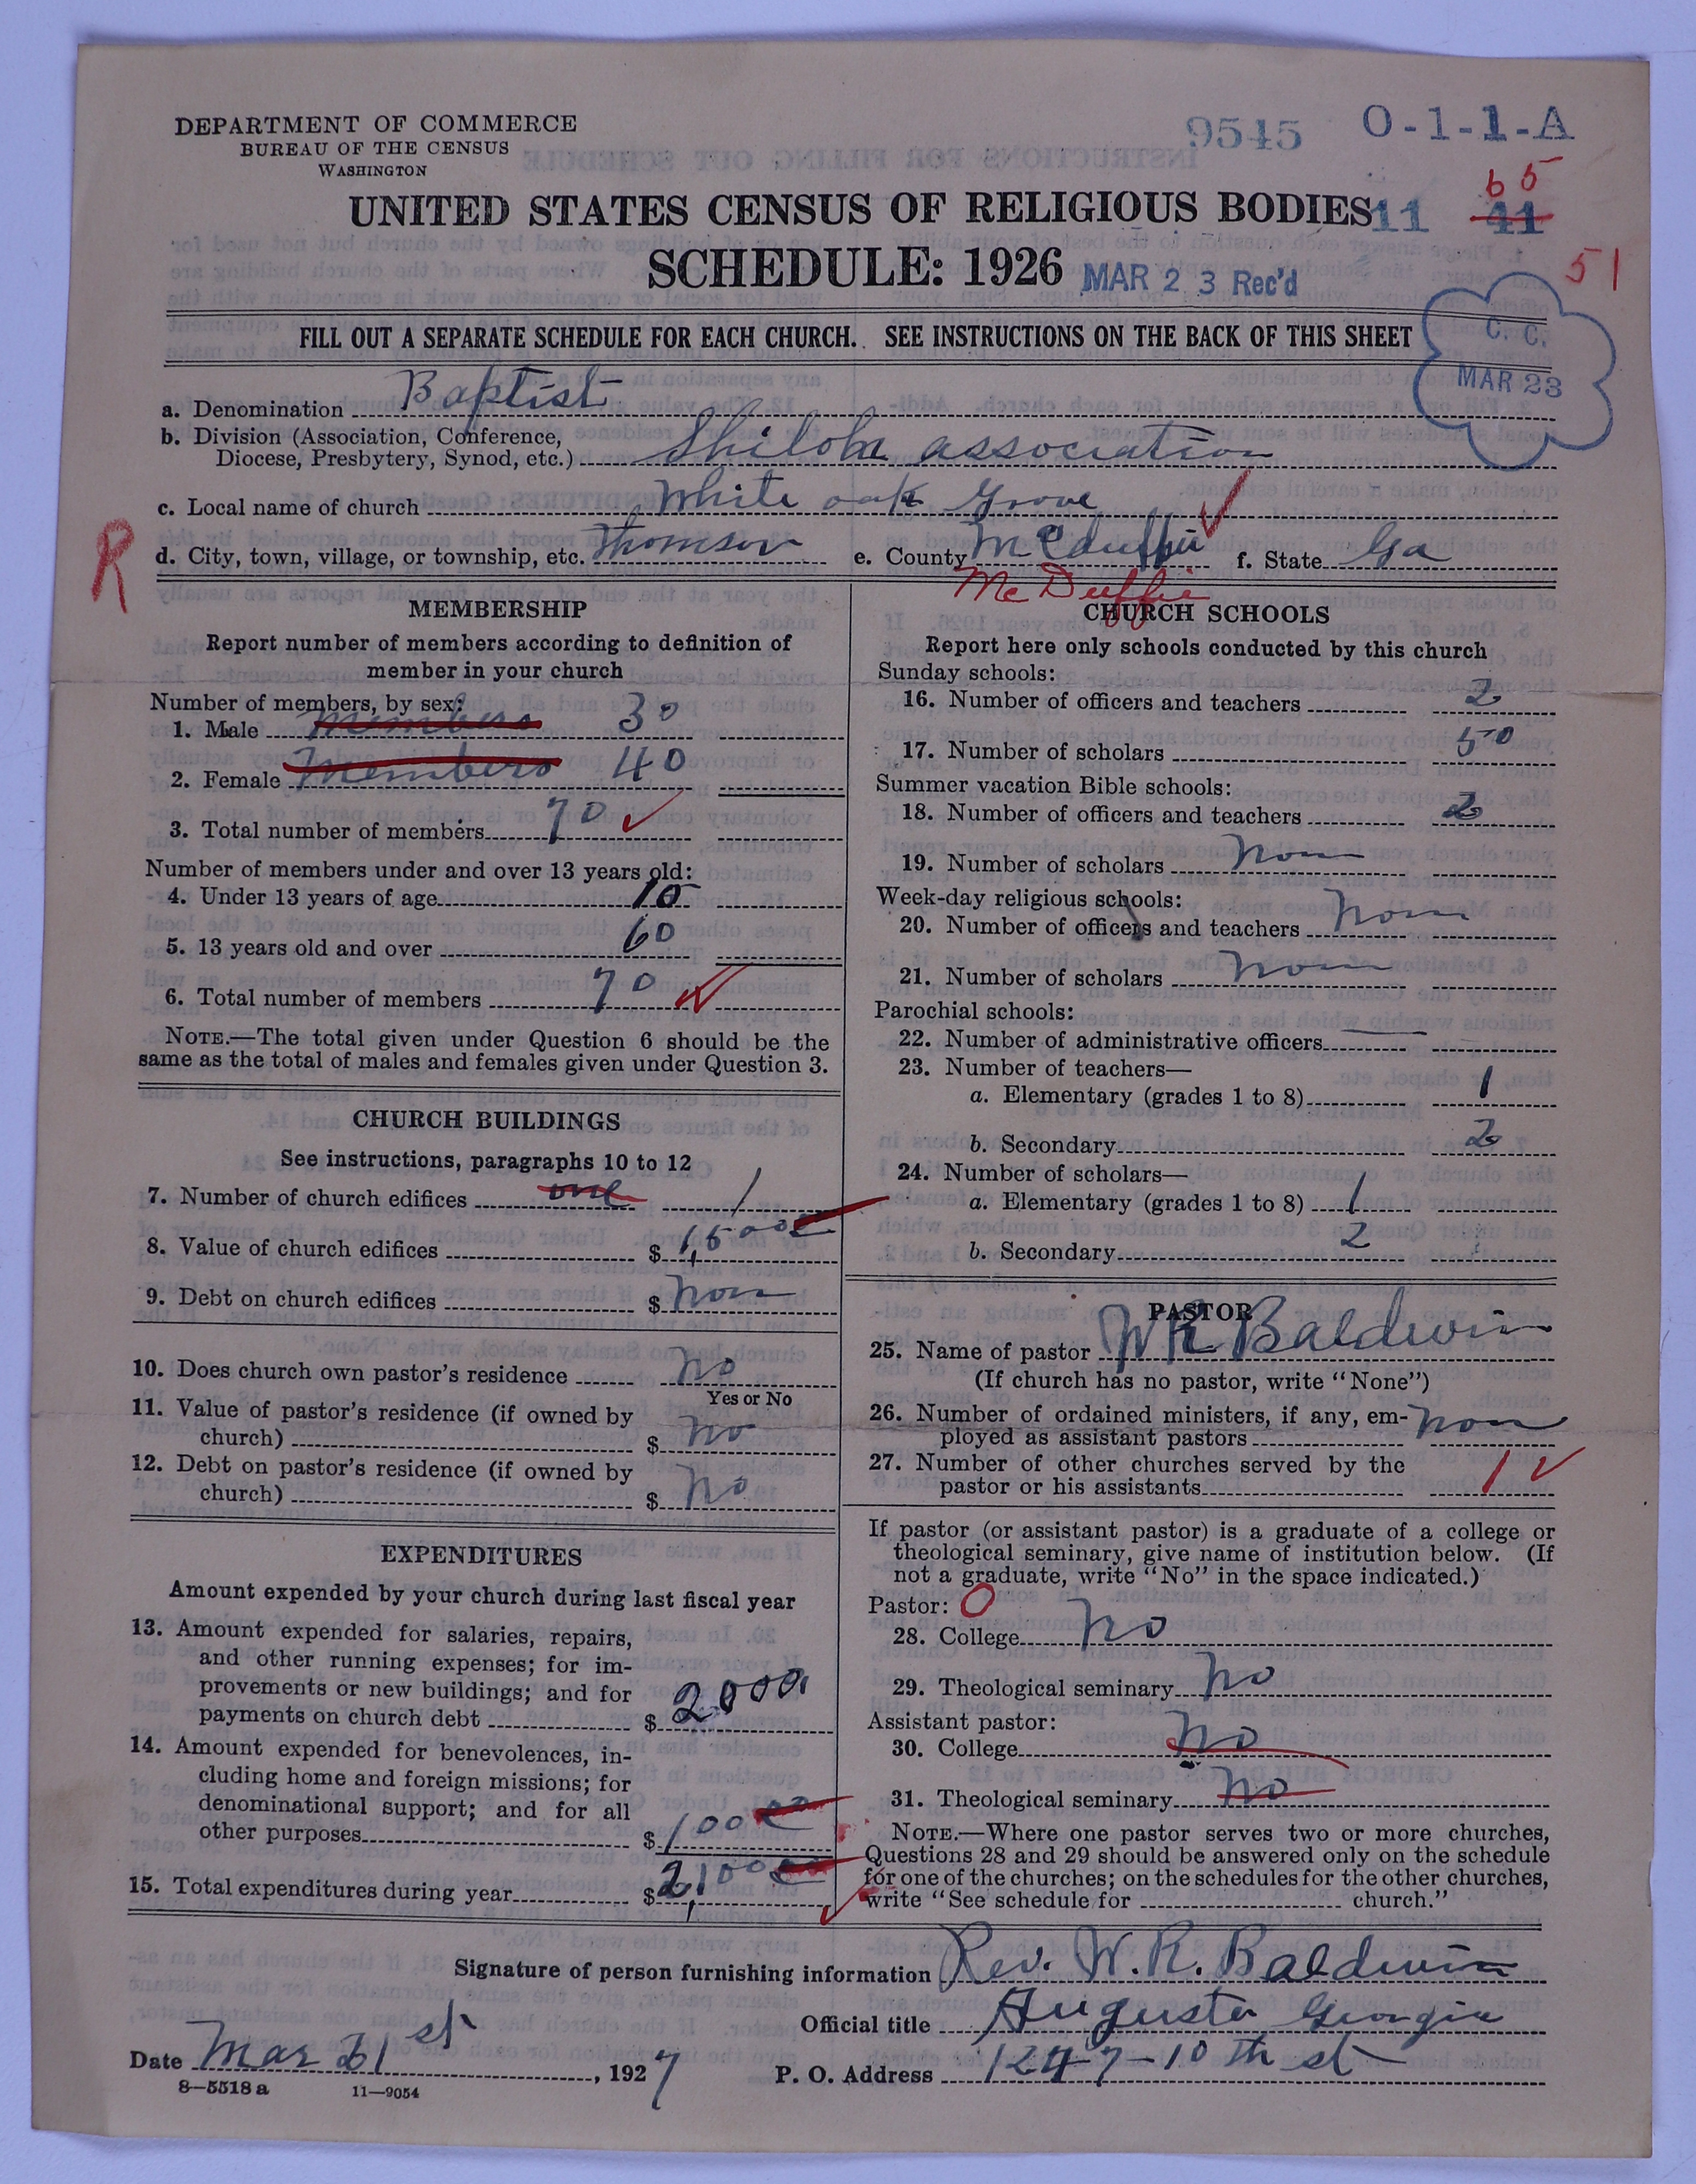 DEPARTMENT OF COMMERCE
BUREAU OF THE CENSUS
WASHINGTON
9545 O-1-1-A
UNITED STATES CENSUS OF RELIGIOUS BODIES 11 41 65
SCHEDULE: 1926 MAR 23 Rec'd
51
FILL OUT A SEPARATE SCHEDULE FOR EACH CHURCH. SEE INSTRUCTIONS ON THE BACK OF THIS SHEET
C. C.
MAR 23
a. Denomination Baptist
b. Division (Association, Conference,
Diocese, Presbytery, Synod, etc.) Shiloh association
c. Local name of church White oak Grove
R
d. City, town, village, or township, etc. Thomson e. County McDuffie f. State Ga
Mc Duffie
MEMBERSHIP
Report number of members according to definition of
member in your church
Number of members, by sex:
1. Male members 30
2. Female members 40
3. Total number of members 70
Number of members under and over 13 years old:
4. Under 13 years of age 10
5. 13 years old and over 60
6. Total number of members 70
NOTE.—The total given under Question 6 should be the
same as the total of males and females given under Question 3.
CHURCH BUILDINGS
See instructions, paragraphs 10 to 12
7. Number of church edifices one 1
8. Value of church edifices $ 1,500
9. Debt on church edifices $ non
10. Does church own pastor's residence no
Yes or No
11. Value of pastor's residence (if owned by
church) $ no
12. Debt on pastor's residence (if owned by
church) $ no
EXPENDITURES
Amount expended by your church during last fiscal year
13. Amount expended for salaries, repairs,
and other running expenses; for im-
provements or new buildings; and for
payments on church debt $ 2000
14. Amount expended for benevolences, in-
cluding home and foreign missions; for
denominational support; and for all
other purposes $ 100
15. Total expenditures during year $ 2,100
CHURCH SCHOOLS
Report here only schools conducted by this church
Sunday schools:
16. Number of officers and teachers 2
17. Number of scholars 50
Summer vacation Bible schools:
18. Number of officers and teachers 2
19. Number of scholars non
Week-day religious schools:
20. Number of officers and teachers non
21. Number of scholars non
Parochial schools:
22. Number of administrative officers
23. Number of teachers—
a. Elementary (grades 1 to 8) 1
b. Secondary 2
24. Number of scholars—
a. Elementary (grades 1 to 8) 1
b. Secondary 2
PASTOR
25. Name of pastor W R Baldwin
(If church has no pastor, write "None")
26. Number of ordained ministers, if any, em-
ployed as assistant pastors non
27. Number of other churches served by the
pastor or his assistants 1
If pastor (or assistant pastor) is a graduate of a college or
theological seminary, give name of institution below. (If
not a graduate, write "No" in the space indicated.)
Pastor: 0
28. College no
29. Theological seminary no
Assistant pastor:
30. College no
31. Theological seminary no
NOTE.—Where one pastor serves two or more churches,
Questions 28 and 29 should be answered only on the schedule
for one of the churches; on the schedules for the other churches,
write "See schedule for church."
Signature of person furnishing information Rev. W. R. Baldwin
Official title Augusta Georgia
Date Mar 21st, 1927 P. O. Address 1247-10th st
8—5518 a 11—9054